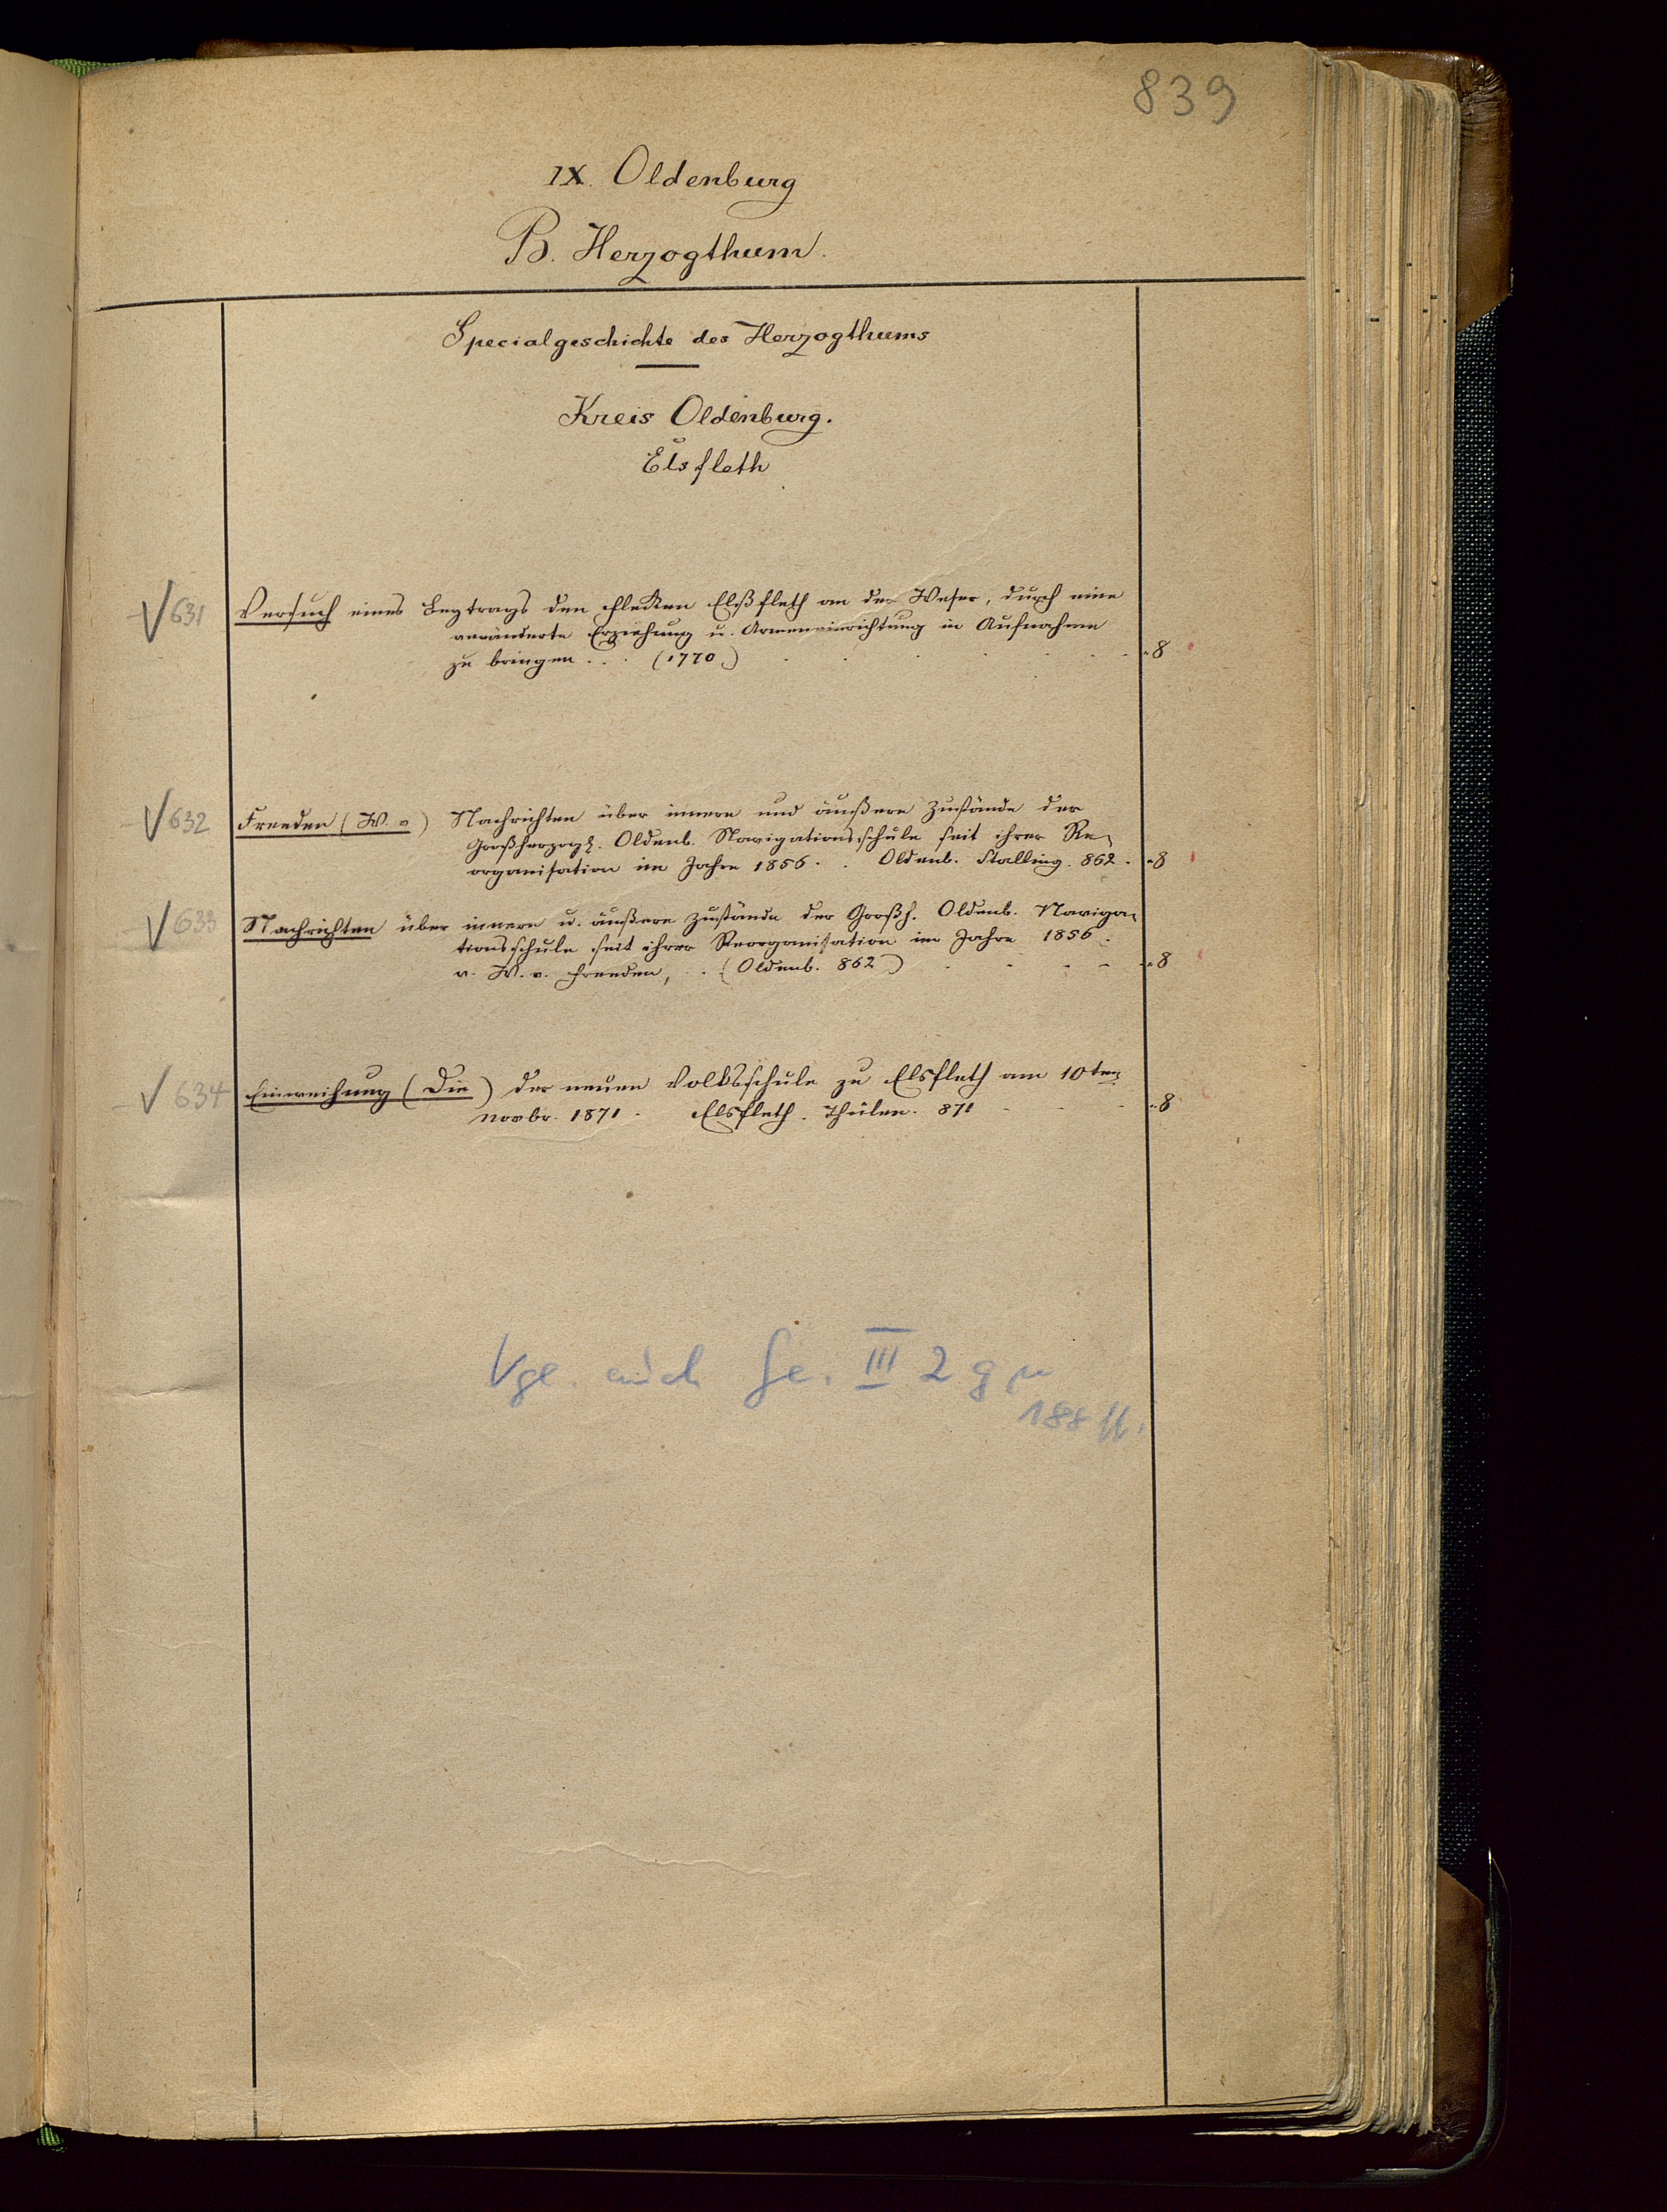 839
IX. Oldenburg
B. Herzogthum.
Specialgeschichte des Herzogthums
Kreis Oldenburg.
Elsfleth
631 Versuch eines Beytrags den Flecken Elsfleth an der Weser, durch eine
veränderte Erziehung u. Armeneinrichtung in Aufnahme
zu bringen . . . (1770.) 8
632 Freeden (W. v) Nachrichten über innere und äußere Zustände der
Großherzogl. Oldenb. Navigationsschule seit ihrer Re-
organisation im Jahre 1856. . Oldenb. Stalling. 862. 8
633 Nachrichten über innere u. äußere Zustände der Großh. Oldenb. Naviga-
tionsschule seit ihrer Reorganisation im Jahre 1856.
v. W. v. Freeden, . . (Oldenb. 862) 8
634 Einweihung (Die) der neuen Volksschule zu Elsfleth am 10ten
Novbr. 1871. Elsfleth. Thülen. 871 8
Vgl. auch Ge. III 2 g
188 ff.